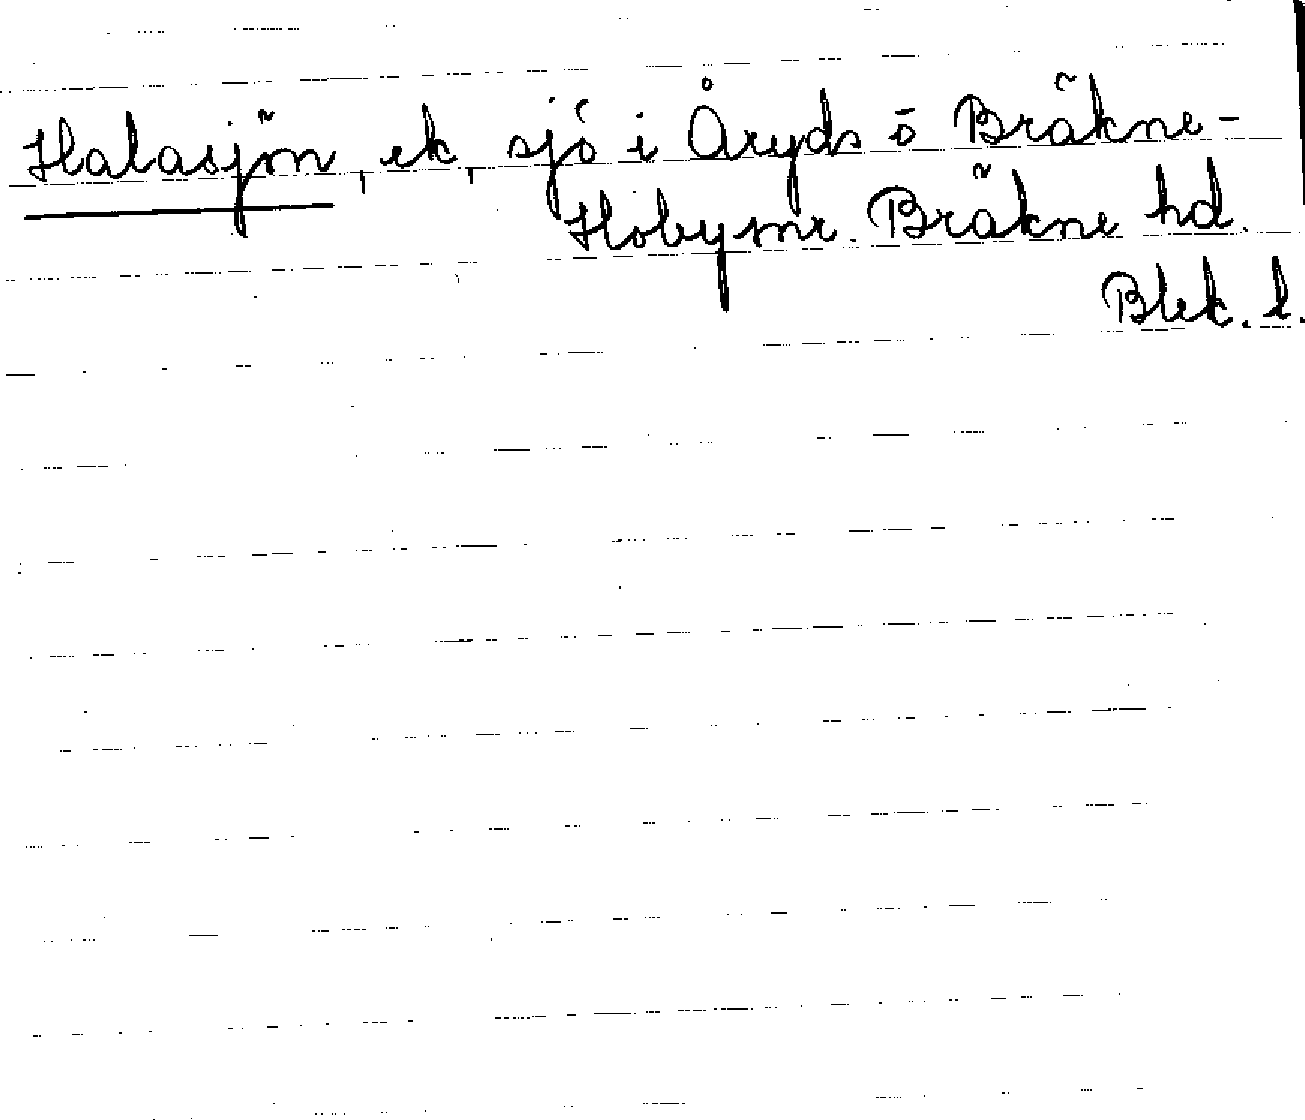 Halasjön, ek, sjö i Åryds ō Bräkne-
Hoby snr. Bräkne hd.
Blek. l.